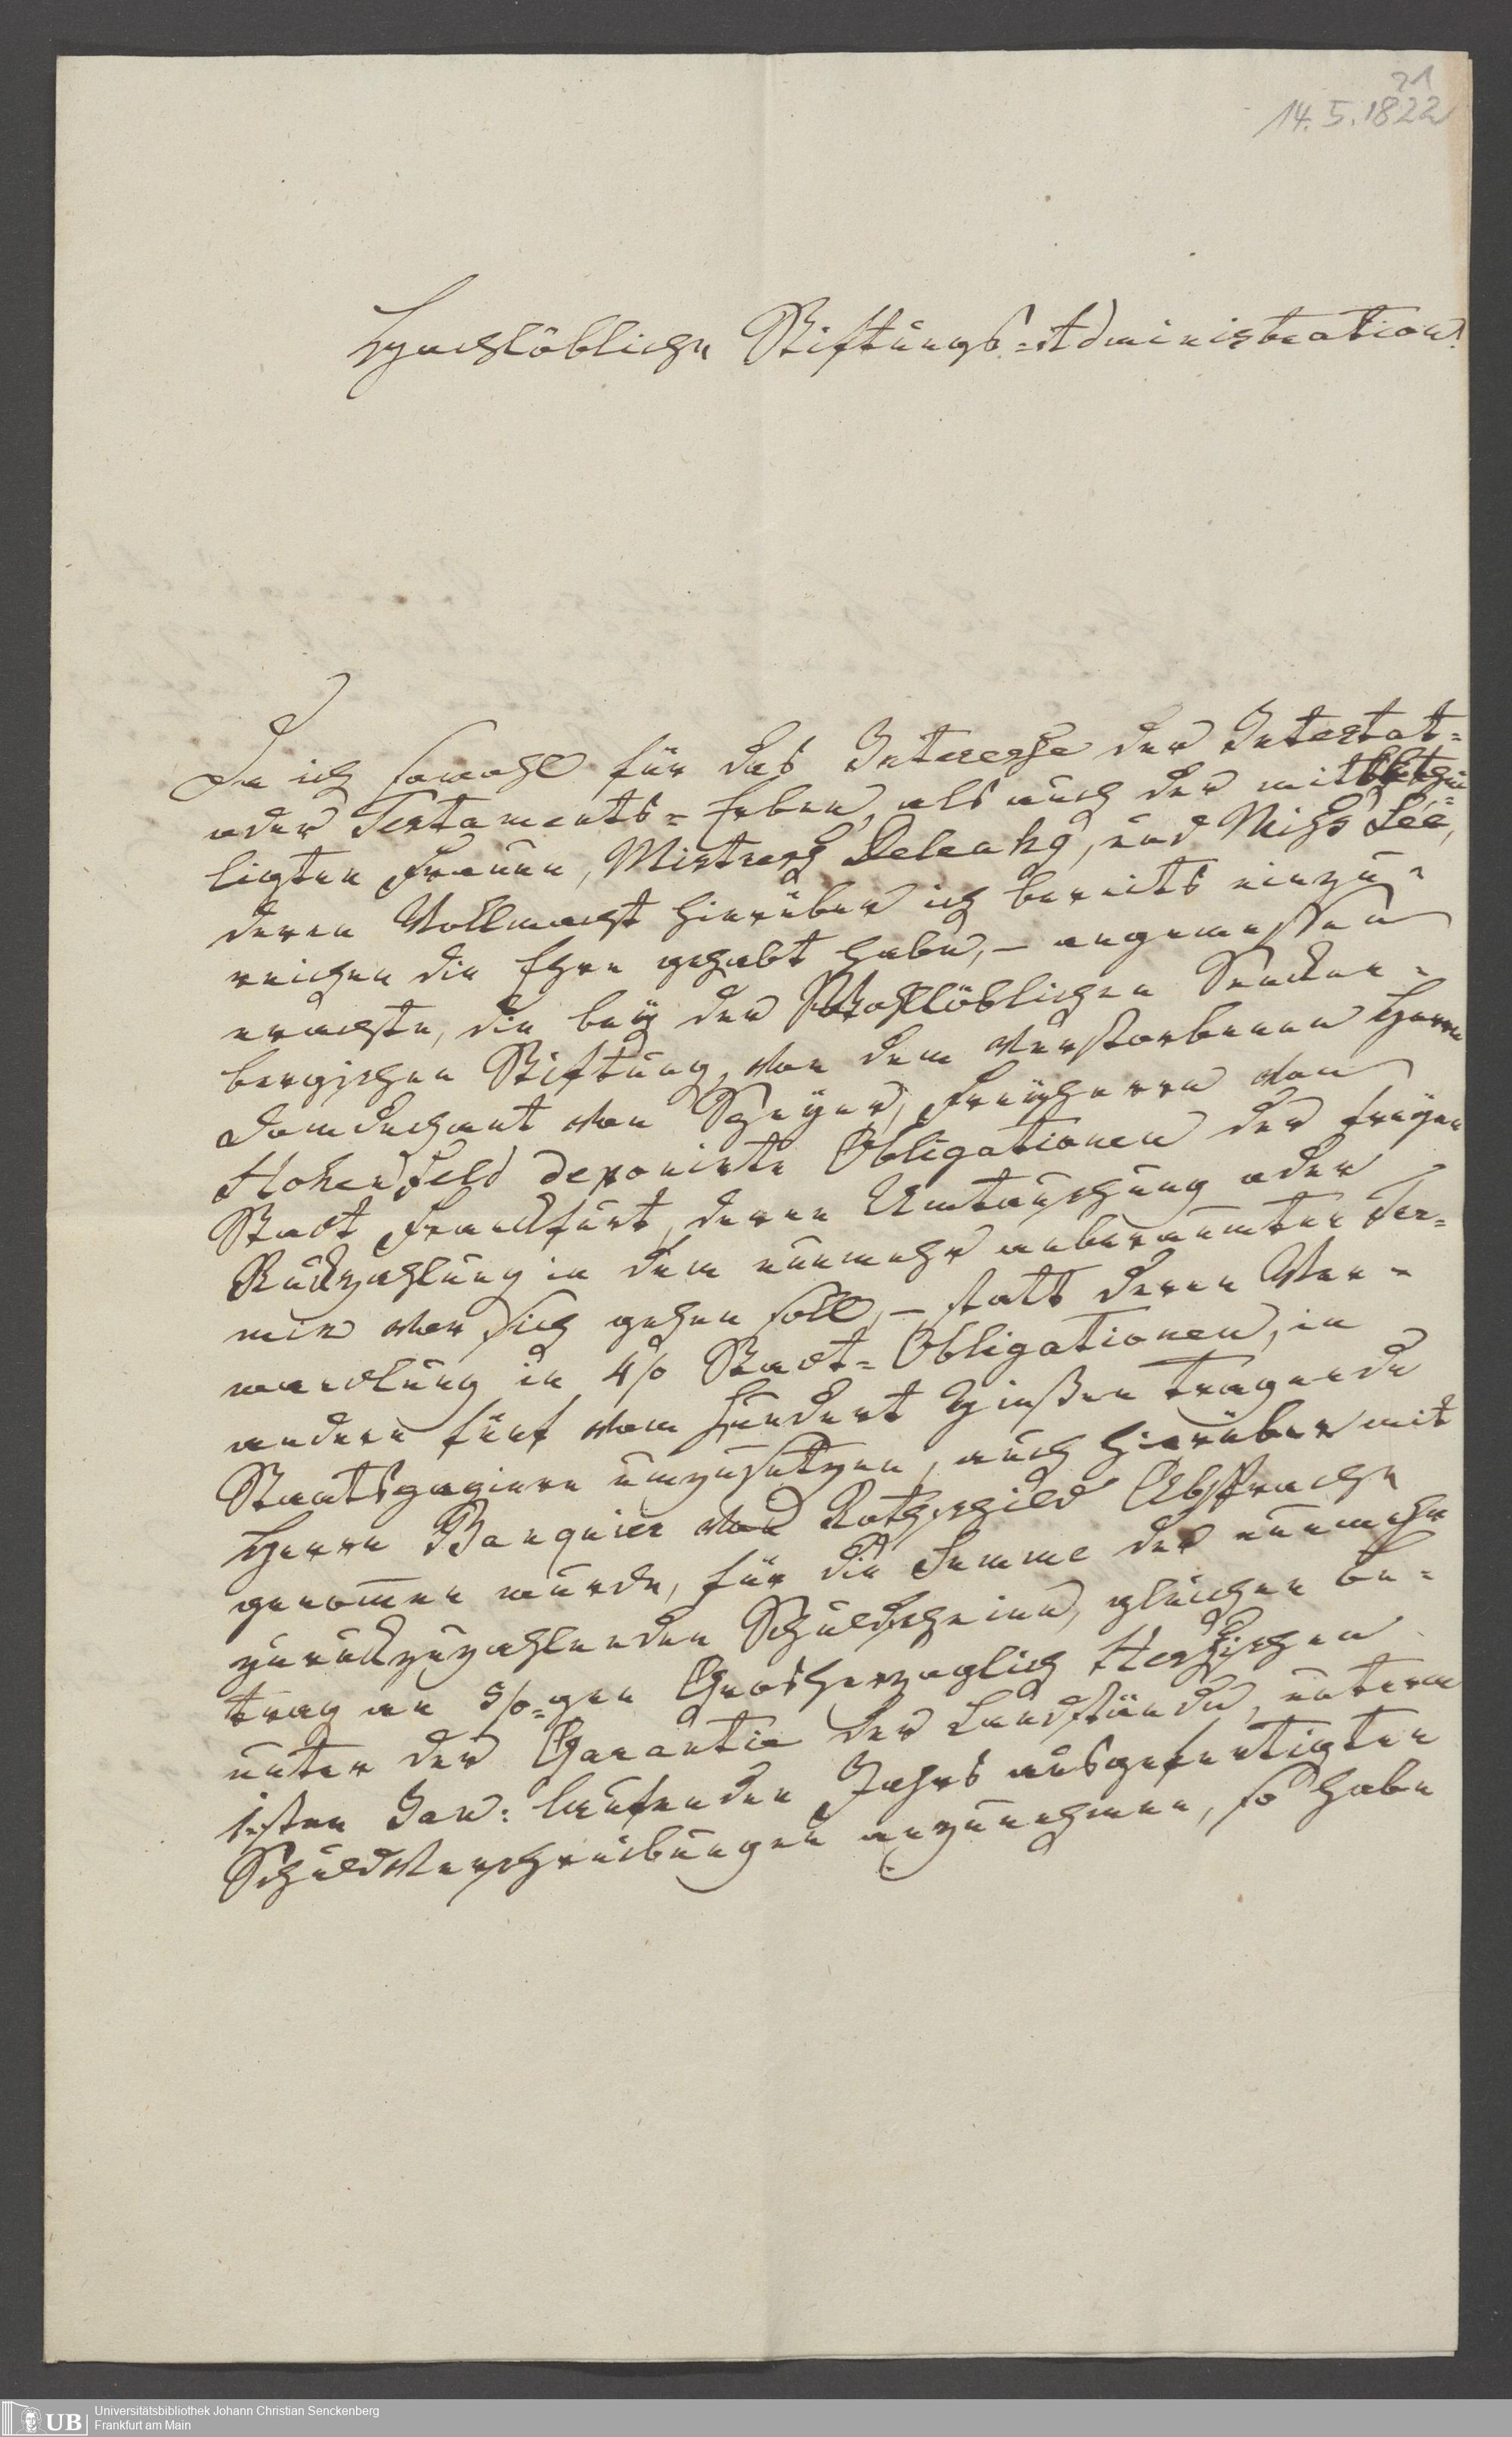 21
14.5.1822
Hochlöbliche Stiftungs-Administration!
Da ich sowohl für das Interesse der Intestat-
oder Testaments-Erben, als auch der mitbethei-
ligten Frauen, Mistress Deleahg, und Miss Lee,
deren Vollmacht hierüber ich bereits einzu-
reichen die Ehre gehabt habe, – angemessen
erachte, die beÿ der Wohllöblichen Sencken-
bergischen Stiftung, von dem verstorbenen Herrn
Domdechant von Speÿer, Freÿherrn von
Hohenfeld deponirte Obligationen der freÿen
Stadt Franckfurt, deren Umtauschung oder
Rückzahlung in dem nunmehr anberaumten Ter-
min vor sich gehen soll, – statt deren Ver-
wandlung in 4% Stadt-Obligationen, in
andere fünf vom Hundert Zinßen tragende
Staatspapiere umzusetzen, auch hierüber mit
Herrn Banquier von Rothschild Absprache
genommen wurde, für die Summe der nunmehr
zurückzuzahlenden Schuldscheine, gleichen Be-
trag an 5%-gen Grosherzoglich Hessischen
unter der Garantie der Landstände, unterm
1sten Jan: laufenden Jahrs ausgefertigten
Schuldverschreibungen anzunehmen, so habe
UB
Universitätsbibliothek Johann Christian Senckenberg
Frankfurt am Main